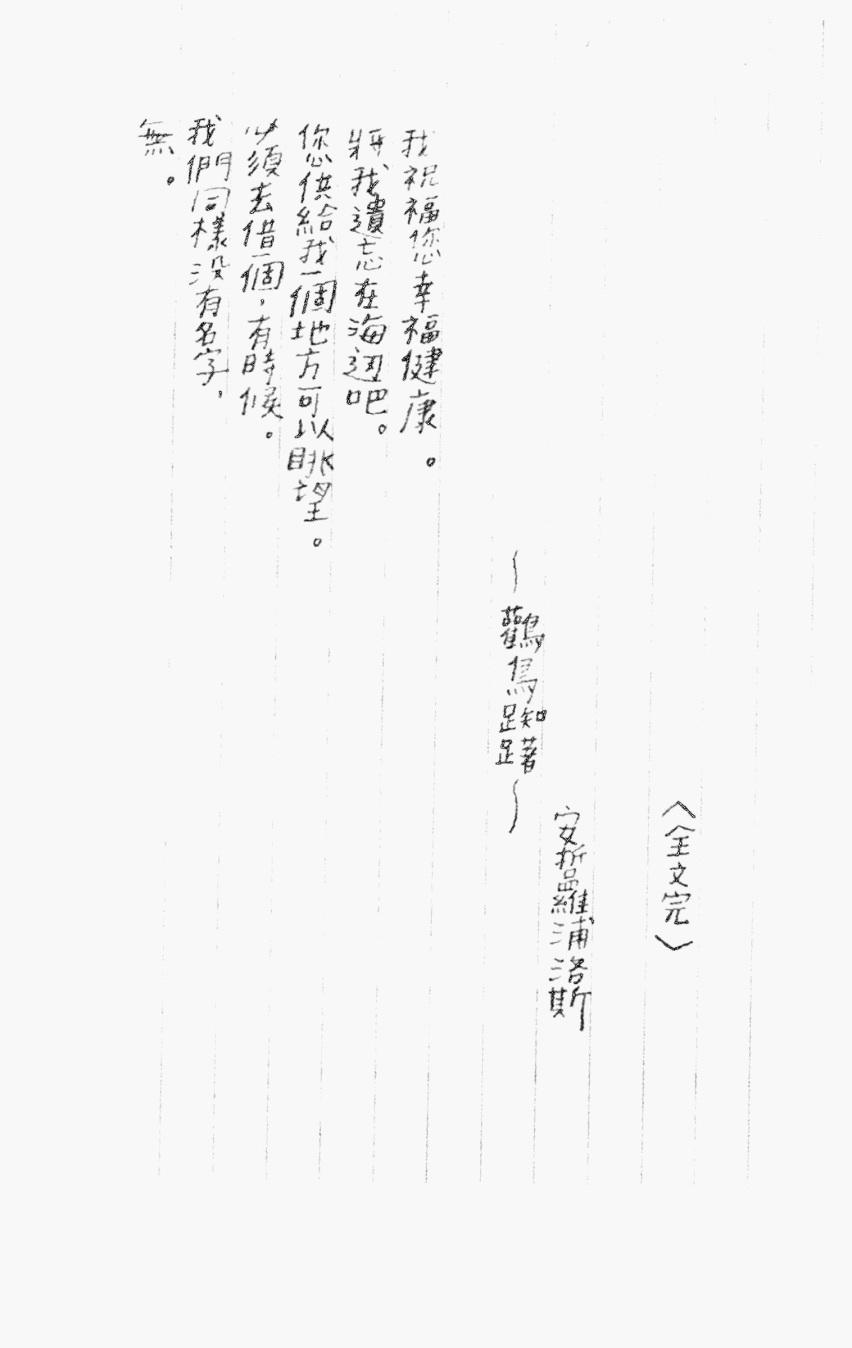 無。
我們同樣没有名字，
必須去借一個，有時候。
您供給我一個地方可以眺望。
將我遺忘在海边吧。
我祝福您幸福健康。
～鸛鳥踟躇～
安哲羅浦洛斯
〈全文完〉